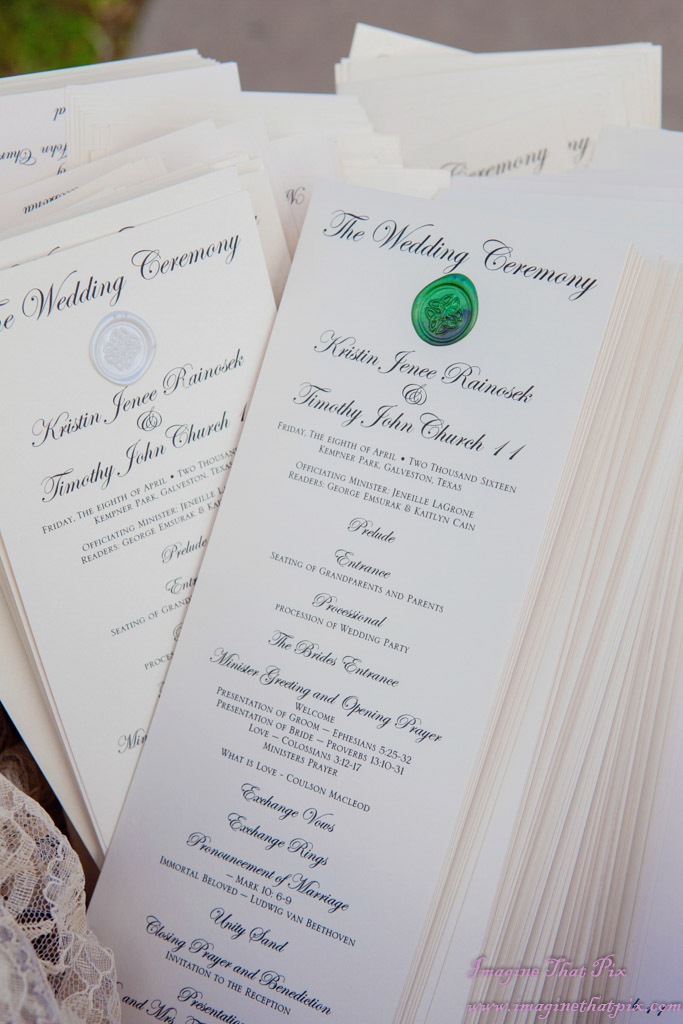 The Wedding Ceremony
Kristin Jenee Rainosek
&
Timothy John Church 11
Friday, The eighth of April • Two Thousand Sixteen
Kempner Park, Galveston, Texas
Officiating Minister: Jeneille LaGrone
Readers: George Emsurak & Kaitlyn Cain
Prelude
Entrance
Seating of Grandparents and Parents
Processional
procession of Wedding Party
The Brides Entrance
Minister Greeting and Opening Prayer
Welcome
Presentation of Groom – Ephesians 5:25-32
Presentation of Bride – Proverbs 13:10-31
Love – Colossians 3:12-17
Ministers Prayer
What is Love - Coulson Macleod
Exchange Vows
Exchange Rings
Pronouncement of Marriage
– Mark 10: 6-9
Immortal Beloved – Ludwig van Beethoven
Unity Sand
Closing Prayer and Benediction
Invitation to the Reception
Presentation
and Mrs.
The Wedding Ceremony
Kristin Jenee Rainosek
&
Timothy John Church 1
Friday, The eighth of April • Two Thousand
Kempner Park, Galveston, Texas
Officiating Minister: Jeneille
Readers: George Emsurak &
Prelude
Seating of Grand
Ceremony
John Chur
Imagine That Pix
www.imaginethatpix.com